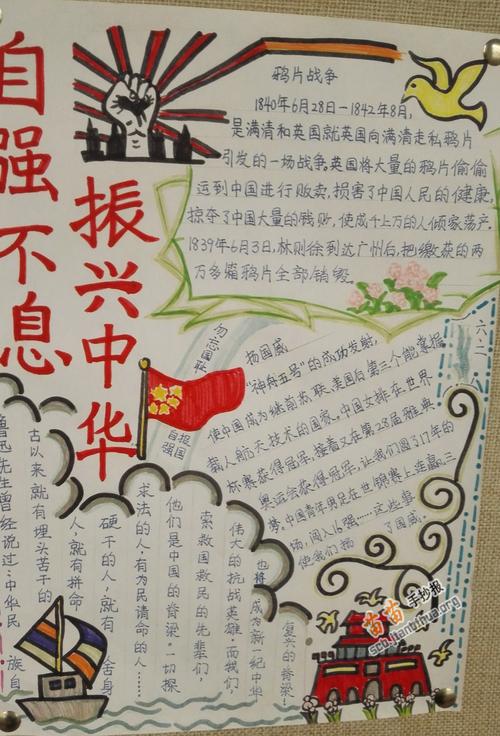 自强不息
振兴中华
鸦片战争
1840年6月28日—1842年8月,
是满清和英国就英国向满清走私鸦片
引发的一场战争。英国将大量的鸦片偷偷
运到中国进行贩卖,损害了中国人民的健康,
掠夺了中国大量的钱财,使成千上万的人倾家荡产.
1839年6月3日,林则徐到达广州后,把缴获的两
万多箱鸦片全部销毁
勿忘国耻
报国
自强
扬国威
"神舟五号"的成功发射,
使中国成为继前苏联,美国后第三个能掌握
载人航天技术的国家。中国女排在世界
杯赛获得冠军,接着又在第28届雅典
奥运会获得冠军,让我们圆了17年的
梦.中国青年男足在世锦赛上连赢三
场,闯入16强……这些事
使我们扬了国威。
六.二
鲁迅先生曾经说过:中华民族自
古以来就有埋头苦干的
人,就有拼命
硬干的人,就有舍身
求法的人:有为民请命的人……
他们是中国的脊梁。一切探
索救国救民的先辈们,
伟大的抗战英雄.而我们
也将成为新一纪中华
复兴的脊梁!
苗苗手抄报
scb.jianbihua.org